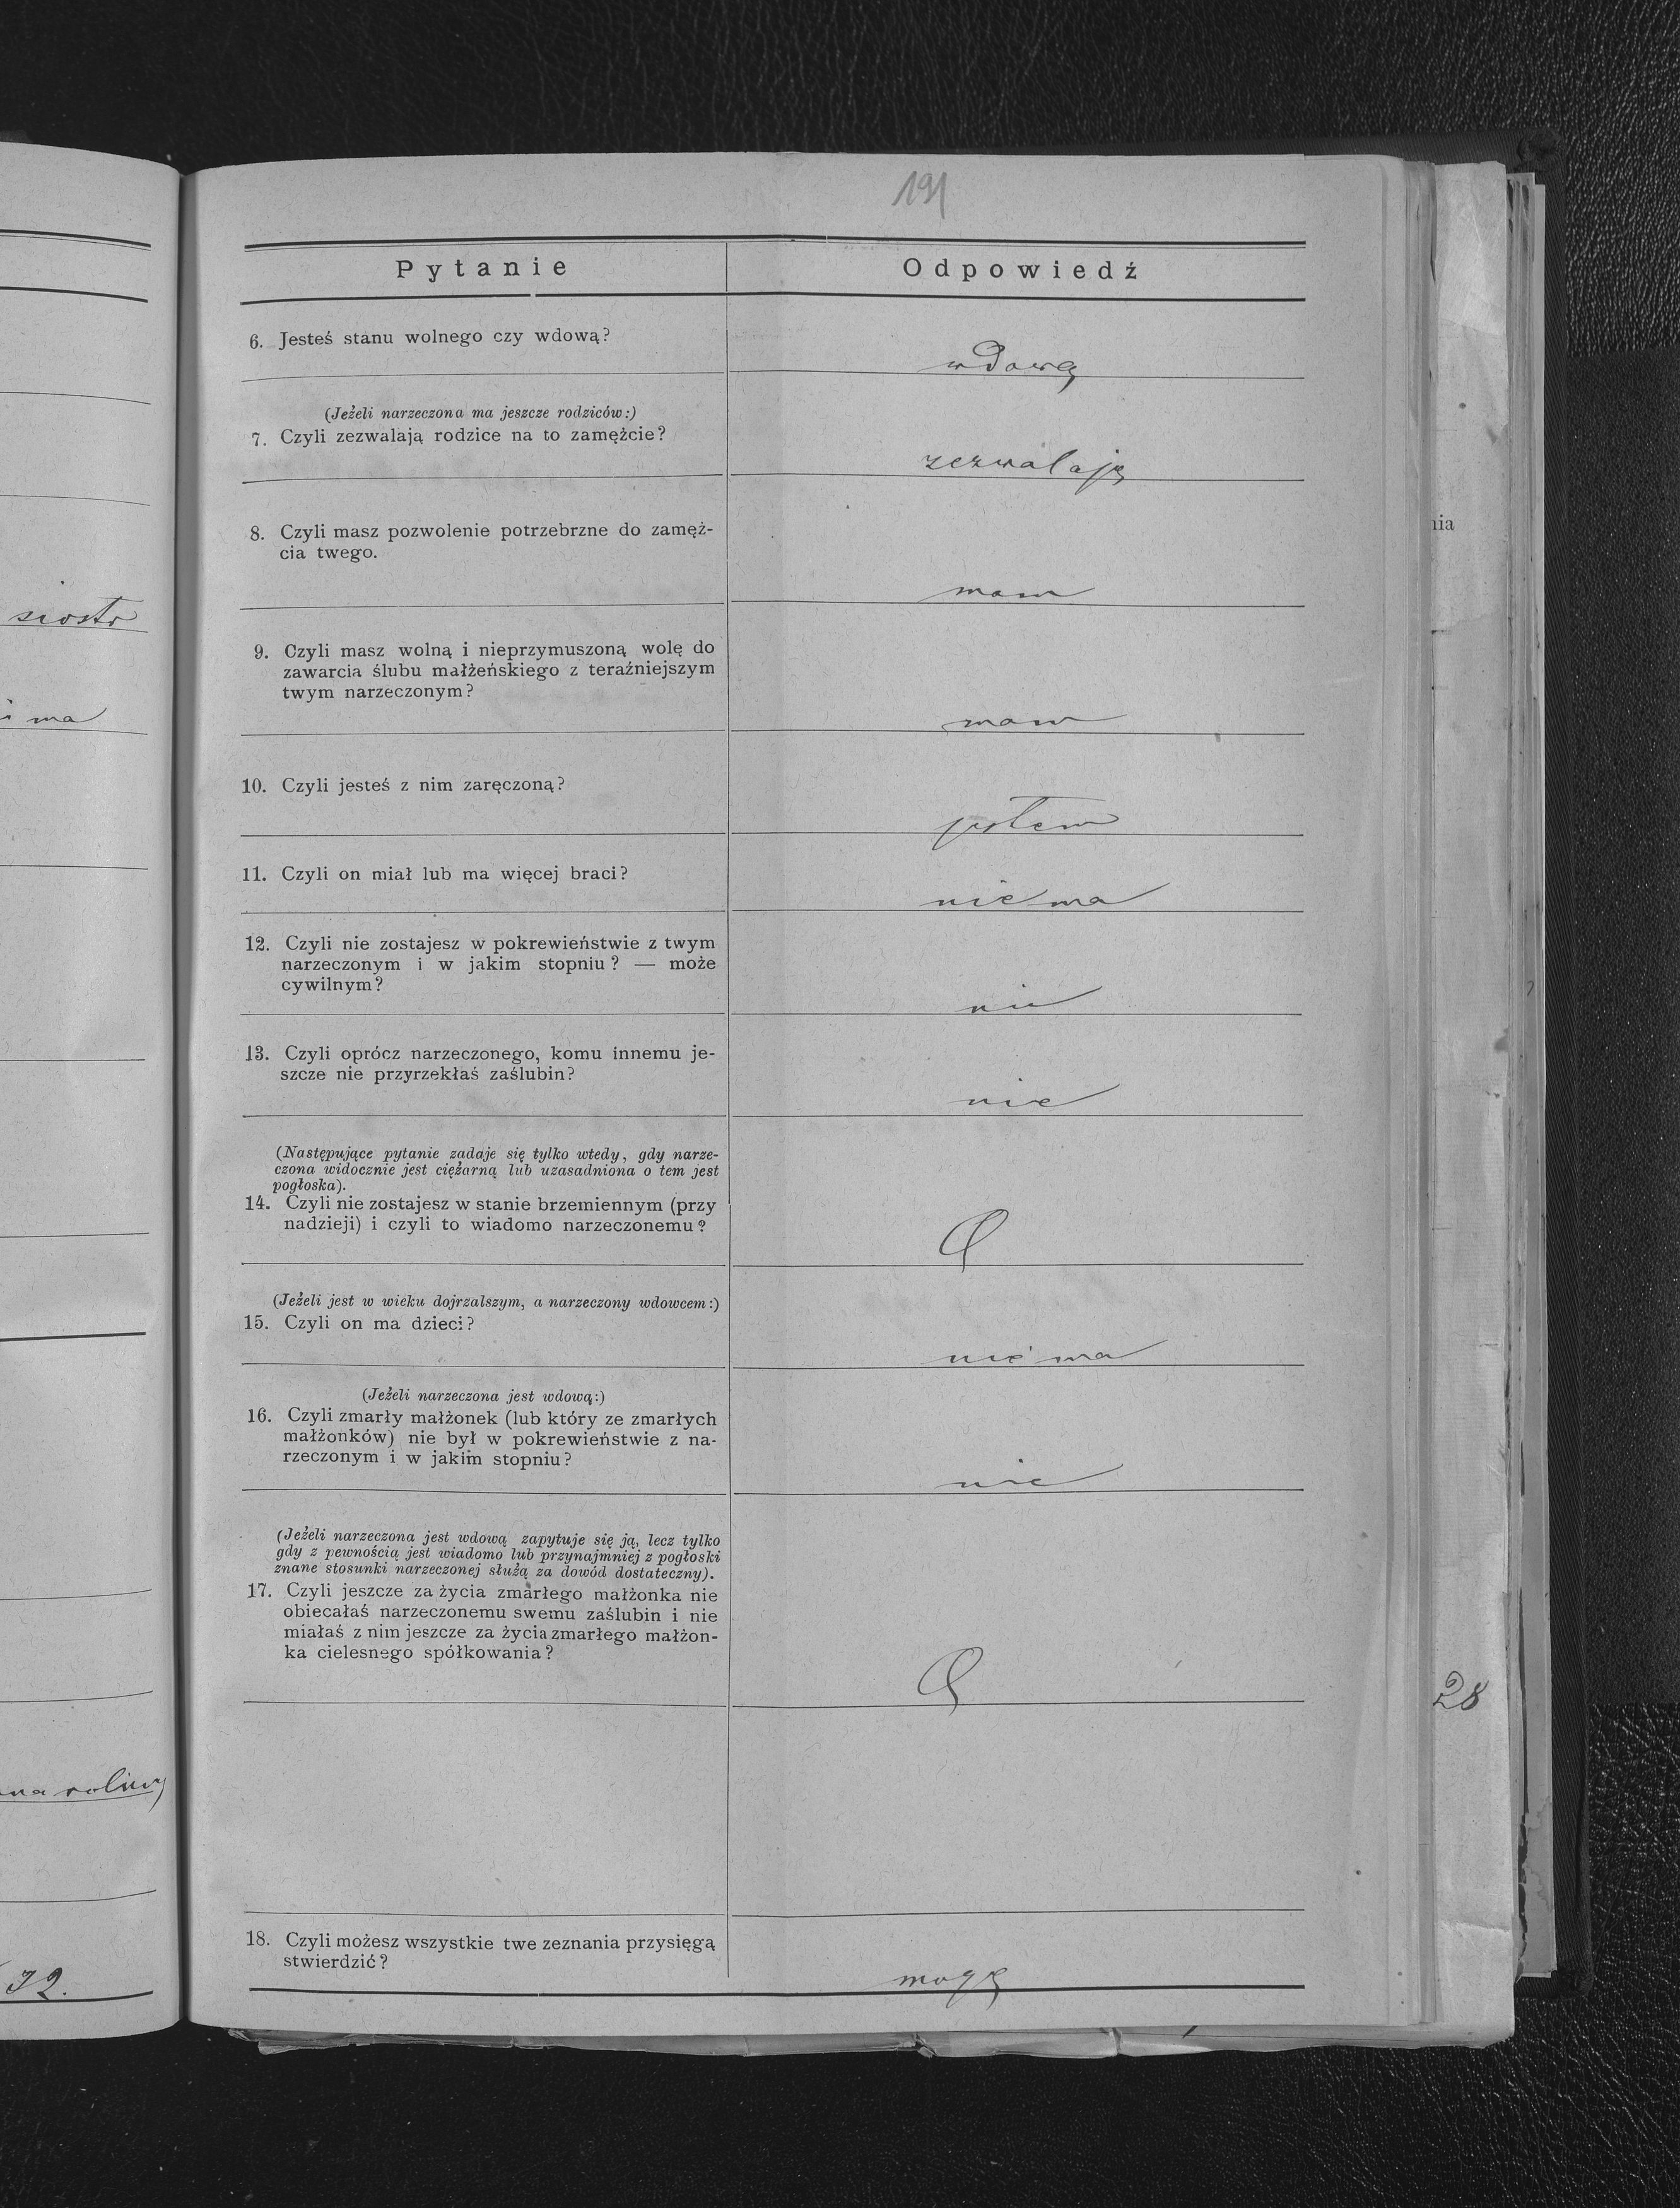 191
Pytanie
Odpowiedź
6. Jesteś stanu wolnego czy wdową?
wdową
(Jeżeli narzeczona ma jeszcze rodziców:)
7. Czyli zezwalają rodzice na to zamężcie?
zezwalają
8. Czyli masz pozwolenie potrzebrzne do zamęż-
cia twego.
mam
9. Czyli masz wolną i nieprzymuszoną wolę do
zawarcia ślubu małżeńskiego z teraźniejszym
twym narzeczonym?
mam
10. Czyli jesteś z nim zaręczoną?
jestem
11. Czyli on miał lub ma więcej braci?
nie ma
12. Czyli nie zostajesz w pokrewieństwie z twym
narzeczonym i w jakim stopniu? — może
cywilnym?
nie
13. Czyli oprócz narzeczonego, komu innemu je-
szcze nie przyrzekłaś zaślubin?
nie
(Następujące pytanie zadaje się tylko wtedy, gdy narze-
czona widocznie jest ciężarną lub uzasadniona o tem jest
pogłoska).
14. Czyli nie zostajesz w stanie brzemiennym (przy
nadzieji) i czyli to wiadomo narzeczonemu?
(Jeżeli jest w wieku dojrzalszym, a narzeczony wdowcem:)
15. Czyli on ma dzieci?
nie ma
(Jeżeli narzeczona jest wdową:)
16. Czyli zmarły małżonek (lub który ze zmarłych
małżonków) nie był w pokrewieństwie z na-
rzeczonym i w jakim stopniu?
nie
(Jeżeli narzeczona jest wdową zapytuje się ją, lecz tylko
gdy z pewnością jest wiadomo lub przynajmniej z pogłoski
znane stosunki narzeczonej służą za dowód dostateczny).
17. Czyli jeszcze za życia zmarłego małżonka nie
obiecałaś narzeczonemu swemu zaślubin i nie
miałaś z nim jeszcze za życia zmarłego małżon-
ka cielesnego spółkowania?
18. Czyli możesz wszystkie twe zeznania przysięgą
stwierdzić?
mogę
siostr
i ma
32.
nia
28